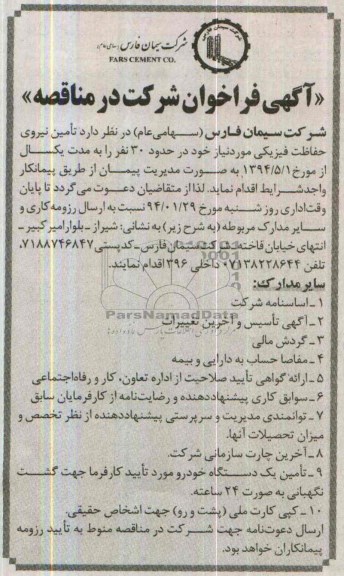 شرکت سیمان فارس (سهامی عام)
FARS CEMENT CO.
«آگهی فراخوان شرکت در مناقصه»
شرکت سیمان فارس (سهامی عام) در نظر دارد تأمین نیروی
حفاظت فیزیکی موردنیاز خود در حدود ۳۰ نفر را به مدت یکسال
از مورخ ۱۳۹۴/۵/۱ به صورت مدیریت پیمان از طریق پیمانکار
واجدشرایط اقدام نماید. لذا از متقاضیان دعوت می‌گردد تا پایان
وقت‌اداری روز شنبه مورخ ۹۴/۰۱/۲۹ نسبت به ارسال رزومه کاری و
سایر مدارک مربوطه (به شرح زیر) به نشانی: شیراز ـ بلوار امیرکبیر ـ
انتهای خیابان فاخته، شرکت سیمان فارس ـ کدپستی ۷۱۸۸۷۴۶۸۴۷.
تلفن ۰۷۱۳۸۲۲۸۶۴۴ داخلی ۳۹۶ اقدام نمایند.
سایر مدارک:
۱ ـ اساسنامه شرکت
۲ ـ آگهی تأسیس و آخرین تغییرات
ParsNamadData
۳ ـ گردش مالی
۴ ـ مفاصا حساب به دارایی و بیمه
۵ ـ ارائه گواهی تأیید صلاحیت از اداره تعاون، کار و رفاه‌اجتماعی
۶ ـ سوابق کاری پیشنهاددهنده و رضایت‌نامه از کارفرمایان سابق
۷ ـ توانمندی مدیریت و سرپرستی پیشنهاددهنده از نظر تخصص و
میزان تحصیلات آنها.
۸ ـ آخرین چارت سازمانی شرکت.
۹ ـ تأمین یک دستگاه خودرو مورد تأیید کارفرما جهت گشت
نگهبانی به صورت ۲۴ ساعته.
۱۰ ـ کپی کارت ملی (پشت و رو) جهت اشخاص حقیقی.
ارسال دعوت‌نامه جهت شرکت در مناقصه منوط به تأیید رزومه
پیمانکاران خواهد بود.